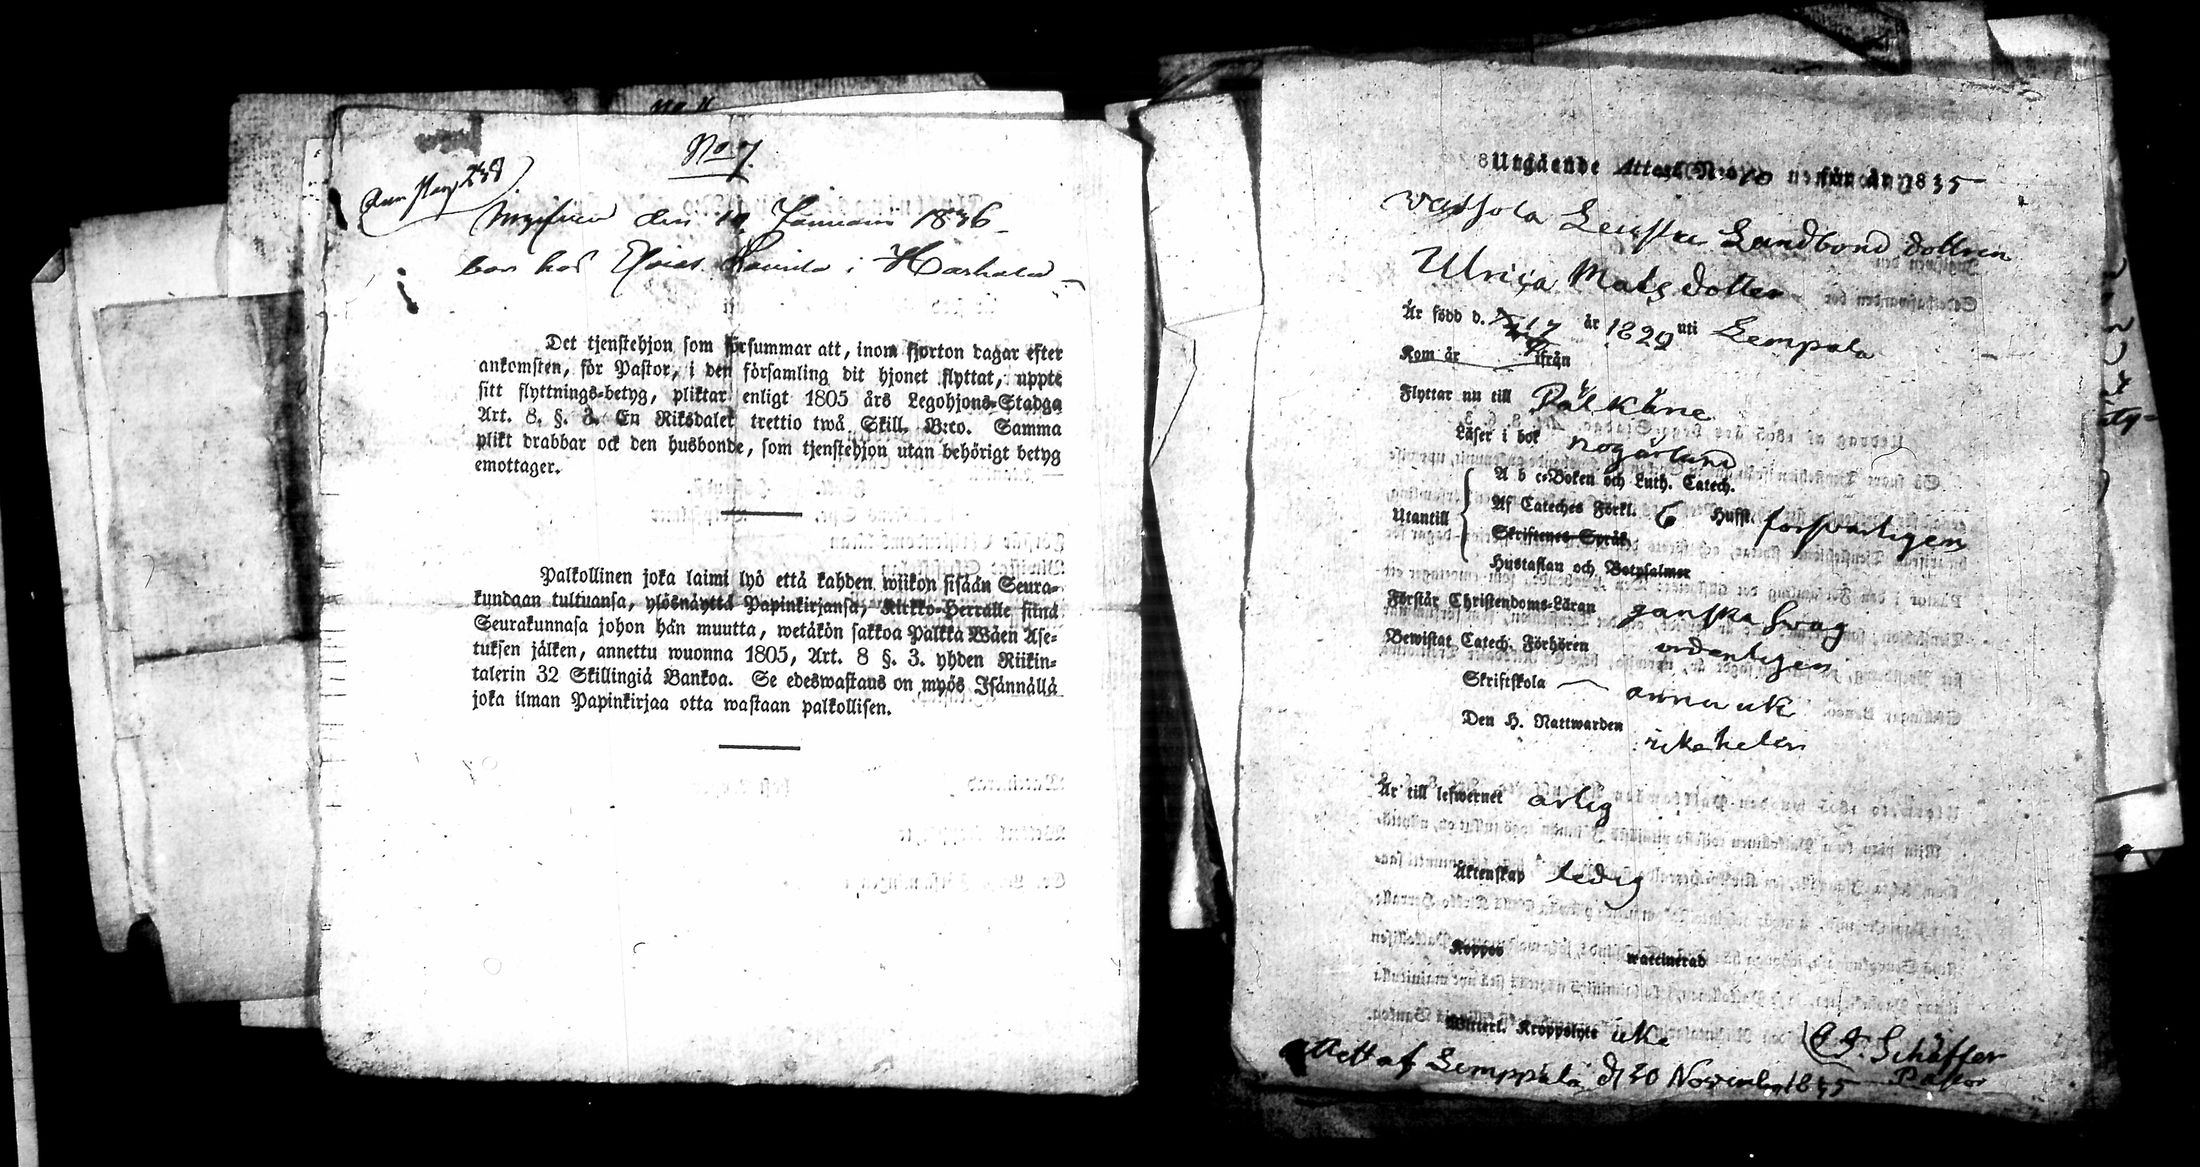 No 7.
den 10 Januari 1836
bor hos i
Det tjenstehjon som försummar att, inom fjorton dagar efter
ankomsten, för Pastor, i den församling dit hjonet flyttat, uppte
sitt flyttnings-betyg, pliktar enligt 1805 års Legohjons-Stadga
Art. 8. §. 3. En Riksdaler trettio twå Skill. B:co. Samma
plikt drabbar ock den husbonde, som tjenstehjon utan behörigt betyg
emottager.
Palkollinen joka laimi lyö että kahden wiikon sisään Seura-
kundaan tultuansa, ylösnäyttä Papinkirjansa, Kirkko-Herralle siinä
Seurakunnasa johon hän muutta, wetäkön sakkoa Palkka Wäen Ase-
tuksen jälken, annettu wuonna 1805, Art. 8 §. 3. yhden Riikin-
talerin 32 Skillingiä Bankoa. Se edeswastaus on myös Isännällä
joka ilman Papinkirjaa otta wastaan palkollisen.
Utgående Attest N:o 10 för år 1835
Landbond dottren
Ulrica Mats dotter
Är född d. 17 år 1829 uti Lempala
Kom år ifrån
Flyttar nu till Pälkäne
Läser i bok någorlund
A b c-Boken och Luth. Catech.
Utantill Af Cateches Förkl. 6 Hufst. forsvarligen
Skriftenes Språk
Hustaflan och Botpsalmer
Förstår Christendoms-Läran ganska swag
Bewistat Catech. Förhören ordentligen
Skriftskola ännu ick
Den H. Nattwarden icke heller
Är till lefwernet ärlig
Äktenskap ledig
Koppor waccinerad
Witterl. Kroppslyte icke
Lemppälä d 20 November 1835 C. J. Schäffer
Pastor